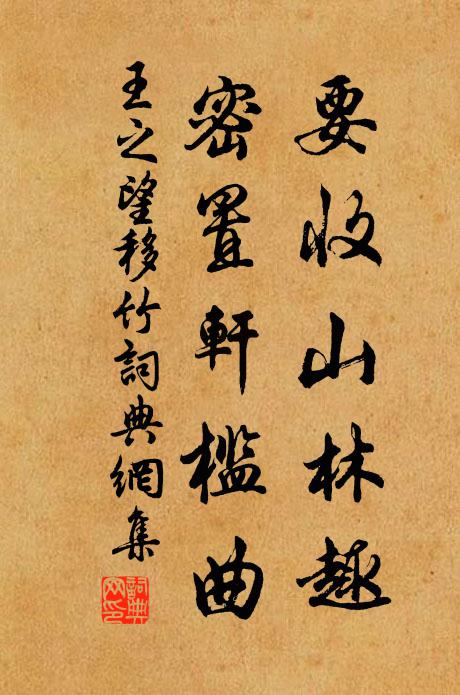 要收山林趣
密置軒檻曲
王之望移竹詞典網集
詞典網印